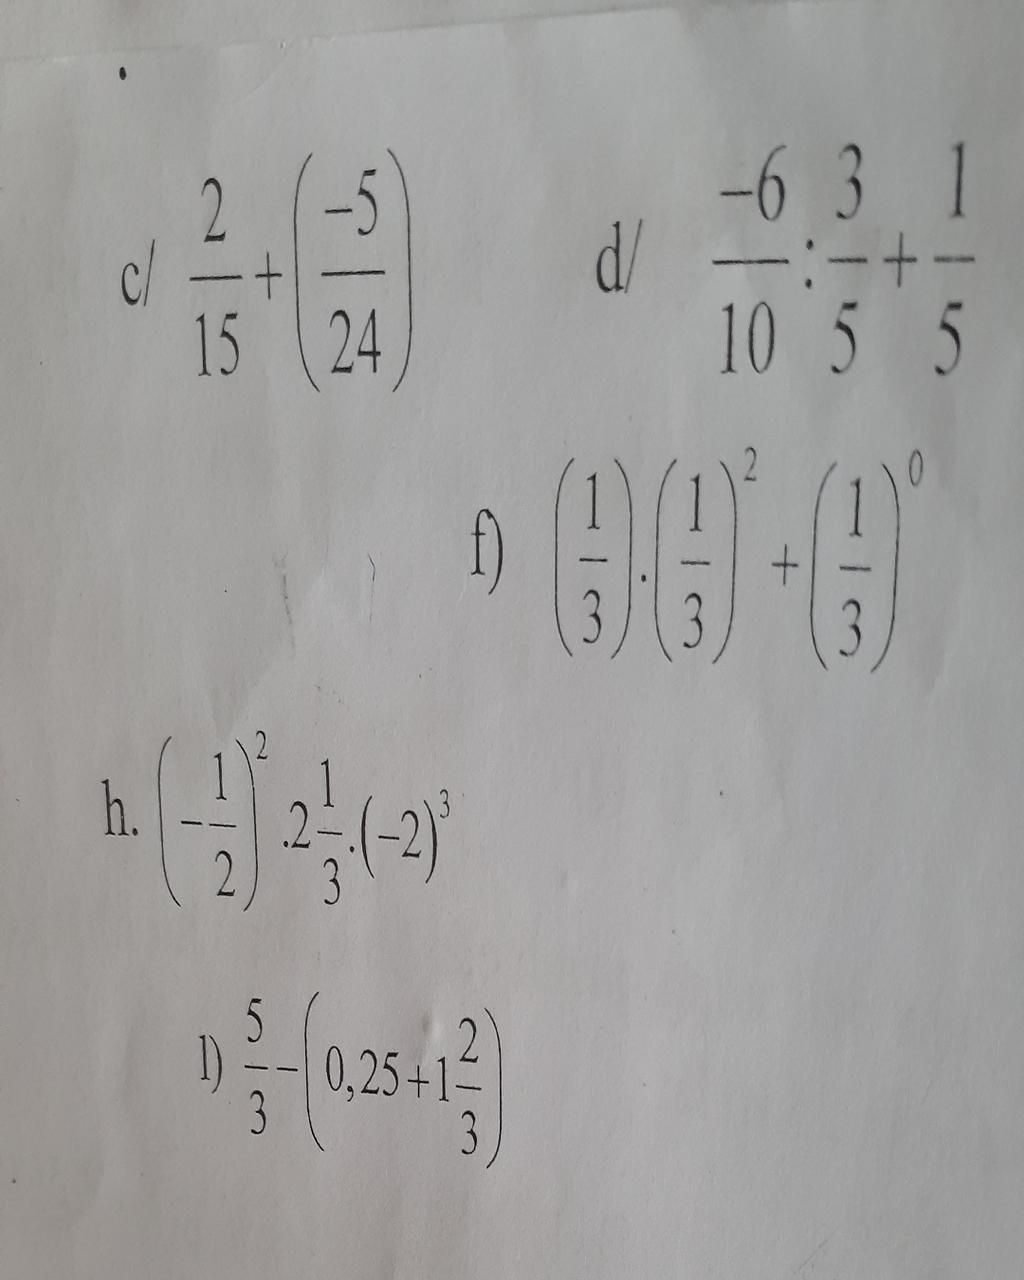 c/ \frac{2}{15}+\left(\frac{-5}{24}\right) d/ \frac{-6}{10}:\frac{3}{5}+\frac{1}{5}
f) \left(\frac{1}{3}\right).\left(\frac{1}{3}\right)^2+\left(\frac{1}{3}\right)^0
h. \left(-\frac{1}{2}\right)^2.2\frac{1}{3}.(-2)^3
l) \frac{5}{3}-\left(0,25+1\frac{2}{3}\right)